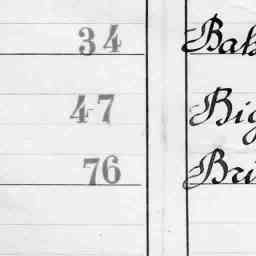 34 Bak
47 Big
76 Bri